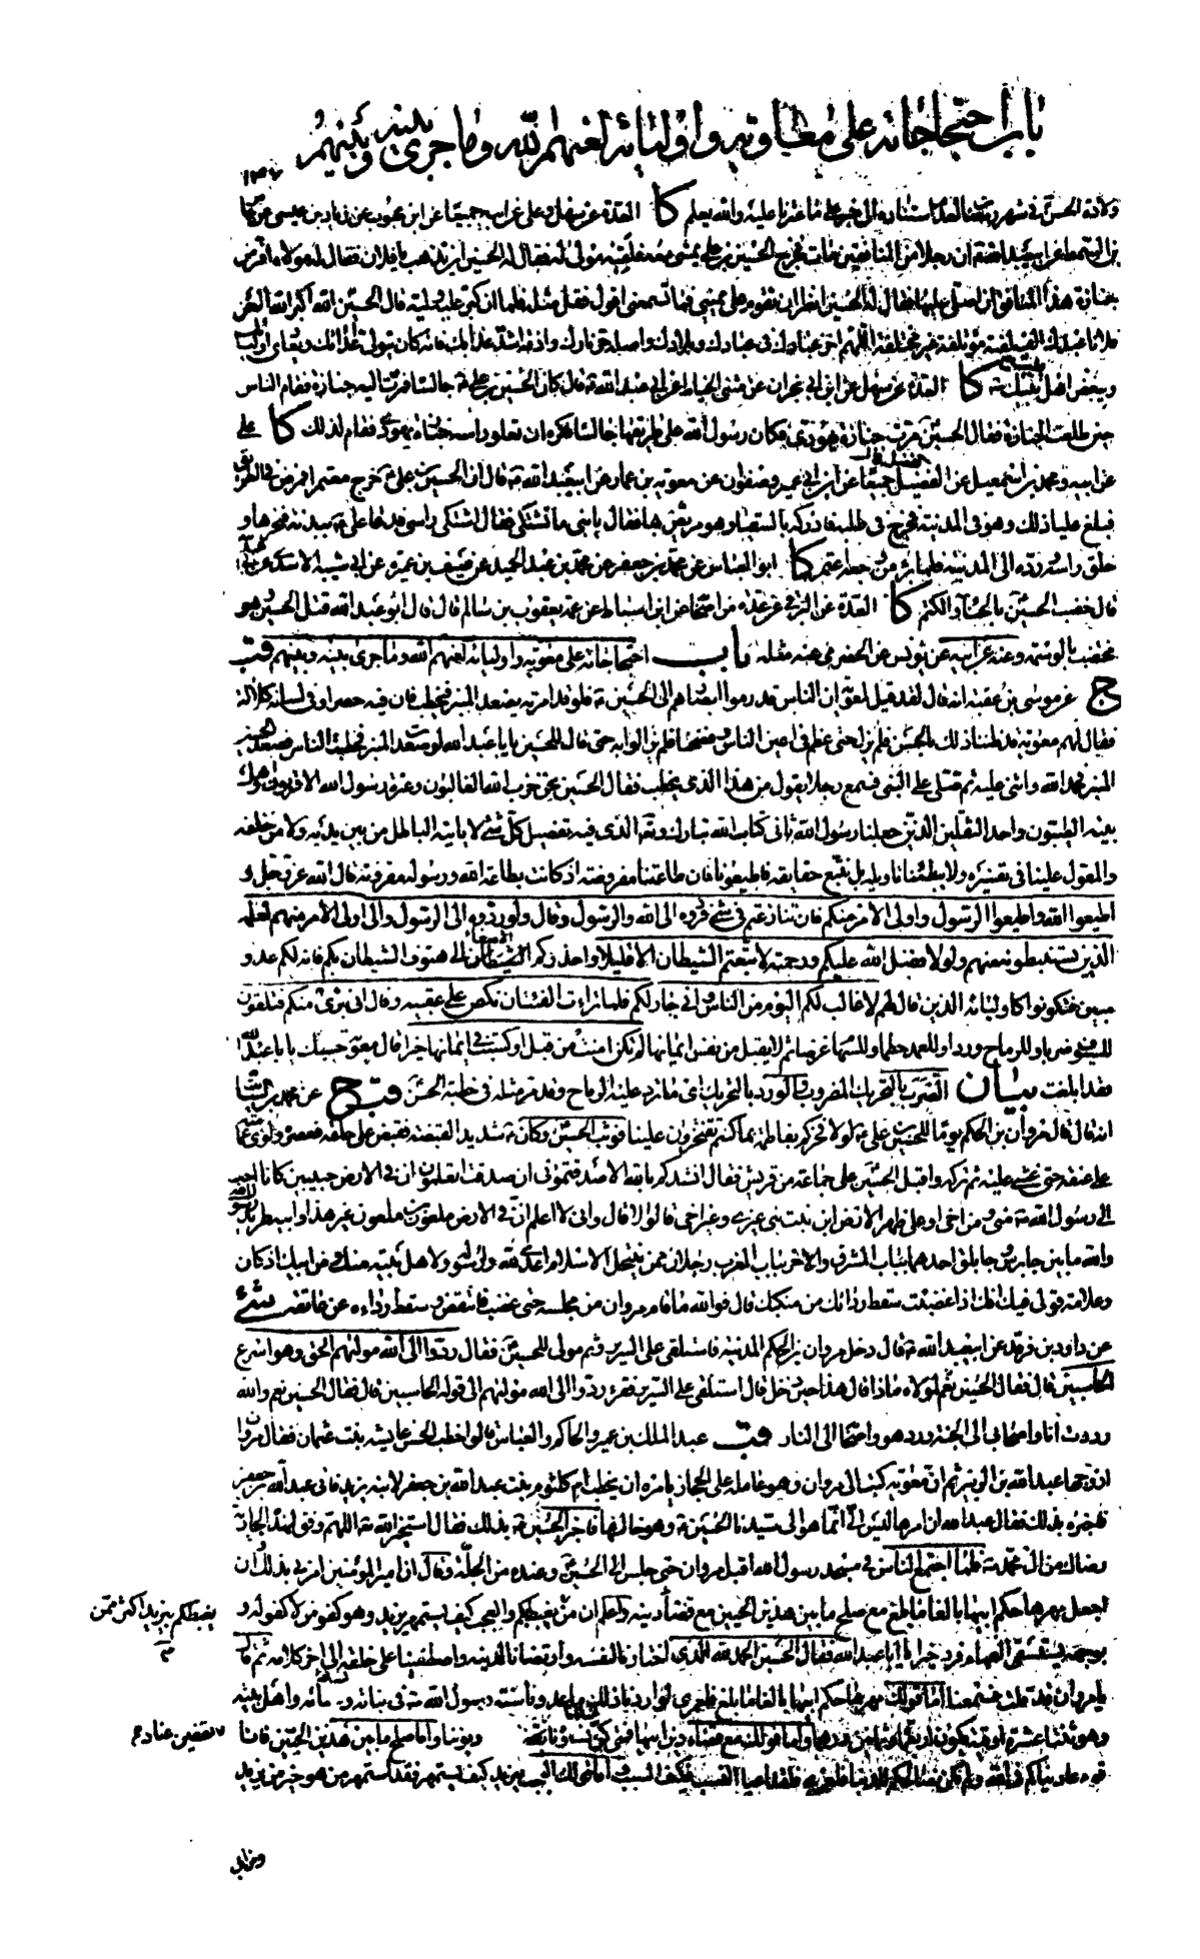 باب احتجاجاته على معاوية واوليائه لعنهم الله وما جرى بينه وبينهم
ولادة الحسن في شهر رمضان والله يعلم كا العدة عن سهل وعلى عن ابيه جميعا عن ابن محبوب عن زياد بن عيسى عن
ان رجلا من المنافقين مات فخرج الحسين بن علي يمشي معه فلقيه مولى له فقال له الحسين اين تذهب يا فلان فقال له مولاه افر من
جنازة هذا المنافق ان اصلي عليها فقال له الحسين انظر ان تقوم على يميني فما تسمعني اقول فقل مثله فلما ان كبر عليه وليه قال الحسين الله اكبر اللهم العن
فلانا عبدك الف لعنة مؤتلفة غير مختلفة اللهم اخز عبدك في عبادك وبلادك واصله حر نارك واذقه اشد عذابك فانه كان يتولى اعدائك ويعادي اوليائك
ويبغض اهل بيت نبيك كا العدة عن سهل عن ابن ابي نجران عن مثنى الحناط عن ابي عبد الله قال كان الحسين بن علي جالسا فمرت اليه جنازة فقام الناس
حين طلعت الجنازة فقال الحسين مرت جنازة يهودي وكان رسول الله على طريقها جالسا فكره ان تعلو راسه جنازة يهودي فقام لذلك كا علي
عن ابيه ومحمد بن اسمعيل عن الفضل جميعا عن ابن ابي عمير وصفوان عن معوية بن عمار عن ابيعبد الله قال ان الحسين بن علي خرج معتمرا فمرض في الطريق
فبلغ عليا ذلك وهو في المدينة فخرج في طلبه فادركه بالسقيا وهو مريض بها فقال يا بني ما تشتكي فقال اشتكي راسي فدعا علي ببدنة فنحرها و
حلق راسه ورده الى المدينة فلما برء من وجعه اعتمر كا ابو العباس عن محمد بن جعفر عن محمد بن عبد الحميد عن سيف بن عميرة عن ابي شيبة الاسدي
قال خضب الحسين بالحناء والكتم كا العدة عن البرقي عن عدة من اصحابه عن ابن اسباط عن عمه يعقوب بن سالم قال قال ابو عبد الله قتل الحسين وهو
مختضب بالوسمة وعنه عن ابيه عن يونس عن الحضرمي عنه مثله باب احتجاجاته على معوية واوليائه لعنهم الله وما جرى بينه وبينهم قب
ج عن موسى بن عقبة انه قال لقد قيل لمعوية ان الناس قد رموا ابصارهم الى الحسين فلو قد امرته يصعد المنبر فيخطب فان فيه حصرا وفي لسانه كلالة
فقال لهم معوية قد ظننا ذلك بالحسن فلم يزل حتى عظم في اعين الناس وفضحنا فلم يزالوا به حتى قال للحسين يا با عبد الله لو صعدت المنبر فخطبت الناس فصعد الحسين
المنبر فحمد الله واثنى عليه ثم صلى على النبي فسمع رجلا يقول من هذا الذي يخطب فقال الحسين نحن حزب الله الغالبون وعترة رسول الله الاقربون واهل
بيته الطيبون واحد الثقلين الذين جعلنا رسول الله ثاني كتاب الله تبارك وتعالى الذي فيه تفصيل كل شيء لا ياتيه الباطل من بين يديه ولا من خلفه
والمعول علينا في تفسيره ولا يبطئنا تاويله بل نتبع حقايقه فاطيعونا فان طاعتنا مفروضة اذ كانت بطاعة الله ورسوله مقرونة قال الله عز وجل و
اطيعوا الله واطيعوا الرسول واولى الامر منكم فان تنازعتم في شيء فردوه الى الله والرسول وقال ولو ردوه الى الرسول والى اولى الامر منهم لعلمه
الذين يستنبطونه منهم ولولا فضل الله عليكم ورحمته لاتبعتم الشيطان الا قليلا واحذركم الاصغاء الى هتوف الشيطان بكم فانه لكم عدو
مبين فتكونوا كاوليائه الذين قال لهم لا غالب لكم اليوم من الناس واني جار لكم فلما تراءت الفئتان نكص على عقبيه وقال اني برئ منكم فتلقون
للسيوف ضربا وللرماح وردا وللعمد حطما وللسهام غرضا ثم لا يقبل من نفس ايمانها لم تكن امنت من قبل او كسبت في ايمانها خيرا قال معوية حسبك يا با عبد الله
فقد ابلغت بيان الضرب بالتحريك المضروب والورد بالتحريك اي ما ترد عليه الرماح وقد مر مثله في خطبة الحسن قب ج عن محمد بن السائب
انه قال قال مروان بن الحكم يوما للحسين بن علي لولا فخركم بفاطمة بما كنتم تفتخرون علينا فوثب الحسين وكان شديد القبضة فقبض على حلقه فعصره ولوى عمامته
على عنقه حتى غشي عليه ثم تركه واقبل الحسين على جماعة من قريش فقال انشدكم بالله الا صدقتموني ان صدقت اتعلمون ان في الارض حبيبين كانا احب
الى رسول الله مني ومن اخي او على ظهر الارض ابن بنت نبي غيري وغير اخي قالوا لا قال واني لا اعلم ان في الارض ملعون بن ملعون غير هذا وابيه طريد رسول الله
والله ما بين جابرس وجابلق احدهما بباب المشرق والاخر بباب المغرب رجلان ممن ينتحل الاسلام اعدى لله ولرسوله ولاهل بيته منك ومن ابيك اذ كان
وعلامة قولي فيك انك اذا غضبت سقط رداؤك عن منكبك قال فوالله ما قام مروان من مجلسه حتى غضب فانتفض وسقط رداءه عن عاتقه شي
عن داود بن فرقد عن ابيعبد الله قال دخل مروان بن الحكم المدينة فاستلقى على السرير وثم مولى للحسين فقال ردوا الى الله موليهم الحق وهو اسرع
الحاسبين قال فقال الحسين لمولاه ماذا قال هذا حين دخل قال استلقى على السرير فقرء ردوا الى الله موليهم الى قوله الحاسبين قال فقال الحسين نعم والله
رددت انا واصحابي الى الجنة ورد هو واصحابه الى النار قب عبد الملك بن عمير والحاكم والعباس قالوا خطب الحسن عايشة بنت عثمان فقال مروان
ازوجها عبد الله بن الزبير ثم ان معوية كتب الى مروان وهو عامله على الحجاز يامره ان يخطب ام كلثوم بنت عبد الله بن جعفر لابنه يزيد فاتى عبد الله بن جعفر
فاخبره بذلك فقال عبد الله ان امرها ليس الي انما هو الى سيدنا الحسين وهو خالها فاخبر الحسين بذلك فقال استخير الله اللهم وفق لهذه الجارية
رضاك من ال محمد فلما اجتمع الناس في مسجد رسول الله اقبل مروان حتى جلس الى الحسين وعنده من الجلة وقال ان امير المؤمنين امرني بذلك وان
اجعل مهرها حكم ابيها بالغا ما بلغ مع صلح ما بين هذين الحيين مع قضاء دينه واعلم ان من يغبطكم والعجب كيف يستمهر يزيد وهو كفو من لا كفو له و
يغبطكم بيزيد اكثر ممن
بوجهه يستسقى الغمام فرد خيرا يا ابا عبد الله فقال الحسين الحمد لله الذي اختارنا لنفسه وارتضانا لدينه واصطفينا على خلقه الى اخر كلامه ثم قال
يا مروان قد قلت فسمعنا اما قولك مهرها حكم ابيها بالغا ما بلغ فلعمري لو اردنا ذلك ما عدونا سنة رسول الله في بناته ونسائه واهل بيته
وهو ثنتا عشرة اوقية يكون اربعمائة وثمانين درهما واما قولك مع قضاء دين ابيها فمتى كن نساؤنا يقضين عنا ديوننا واما صلح ما بين هذين الحيين فانا
يقضين عنا دم
قوم عاديناكم في الله ولم نكن نصالحكم للدنيا فلعمري فلقد اعيا النسب فكيف السبب واما قولك العجب ليزيد كيف يستمهر فقد استمهر من هو خير من يزيد
ومن اب